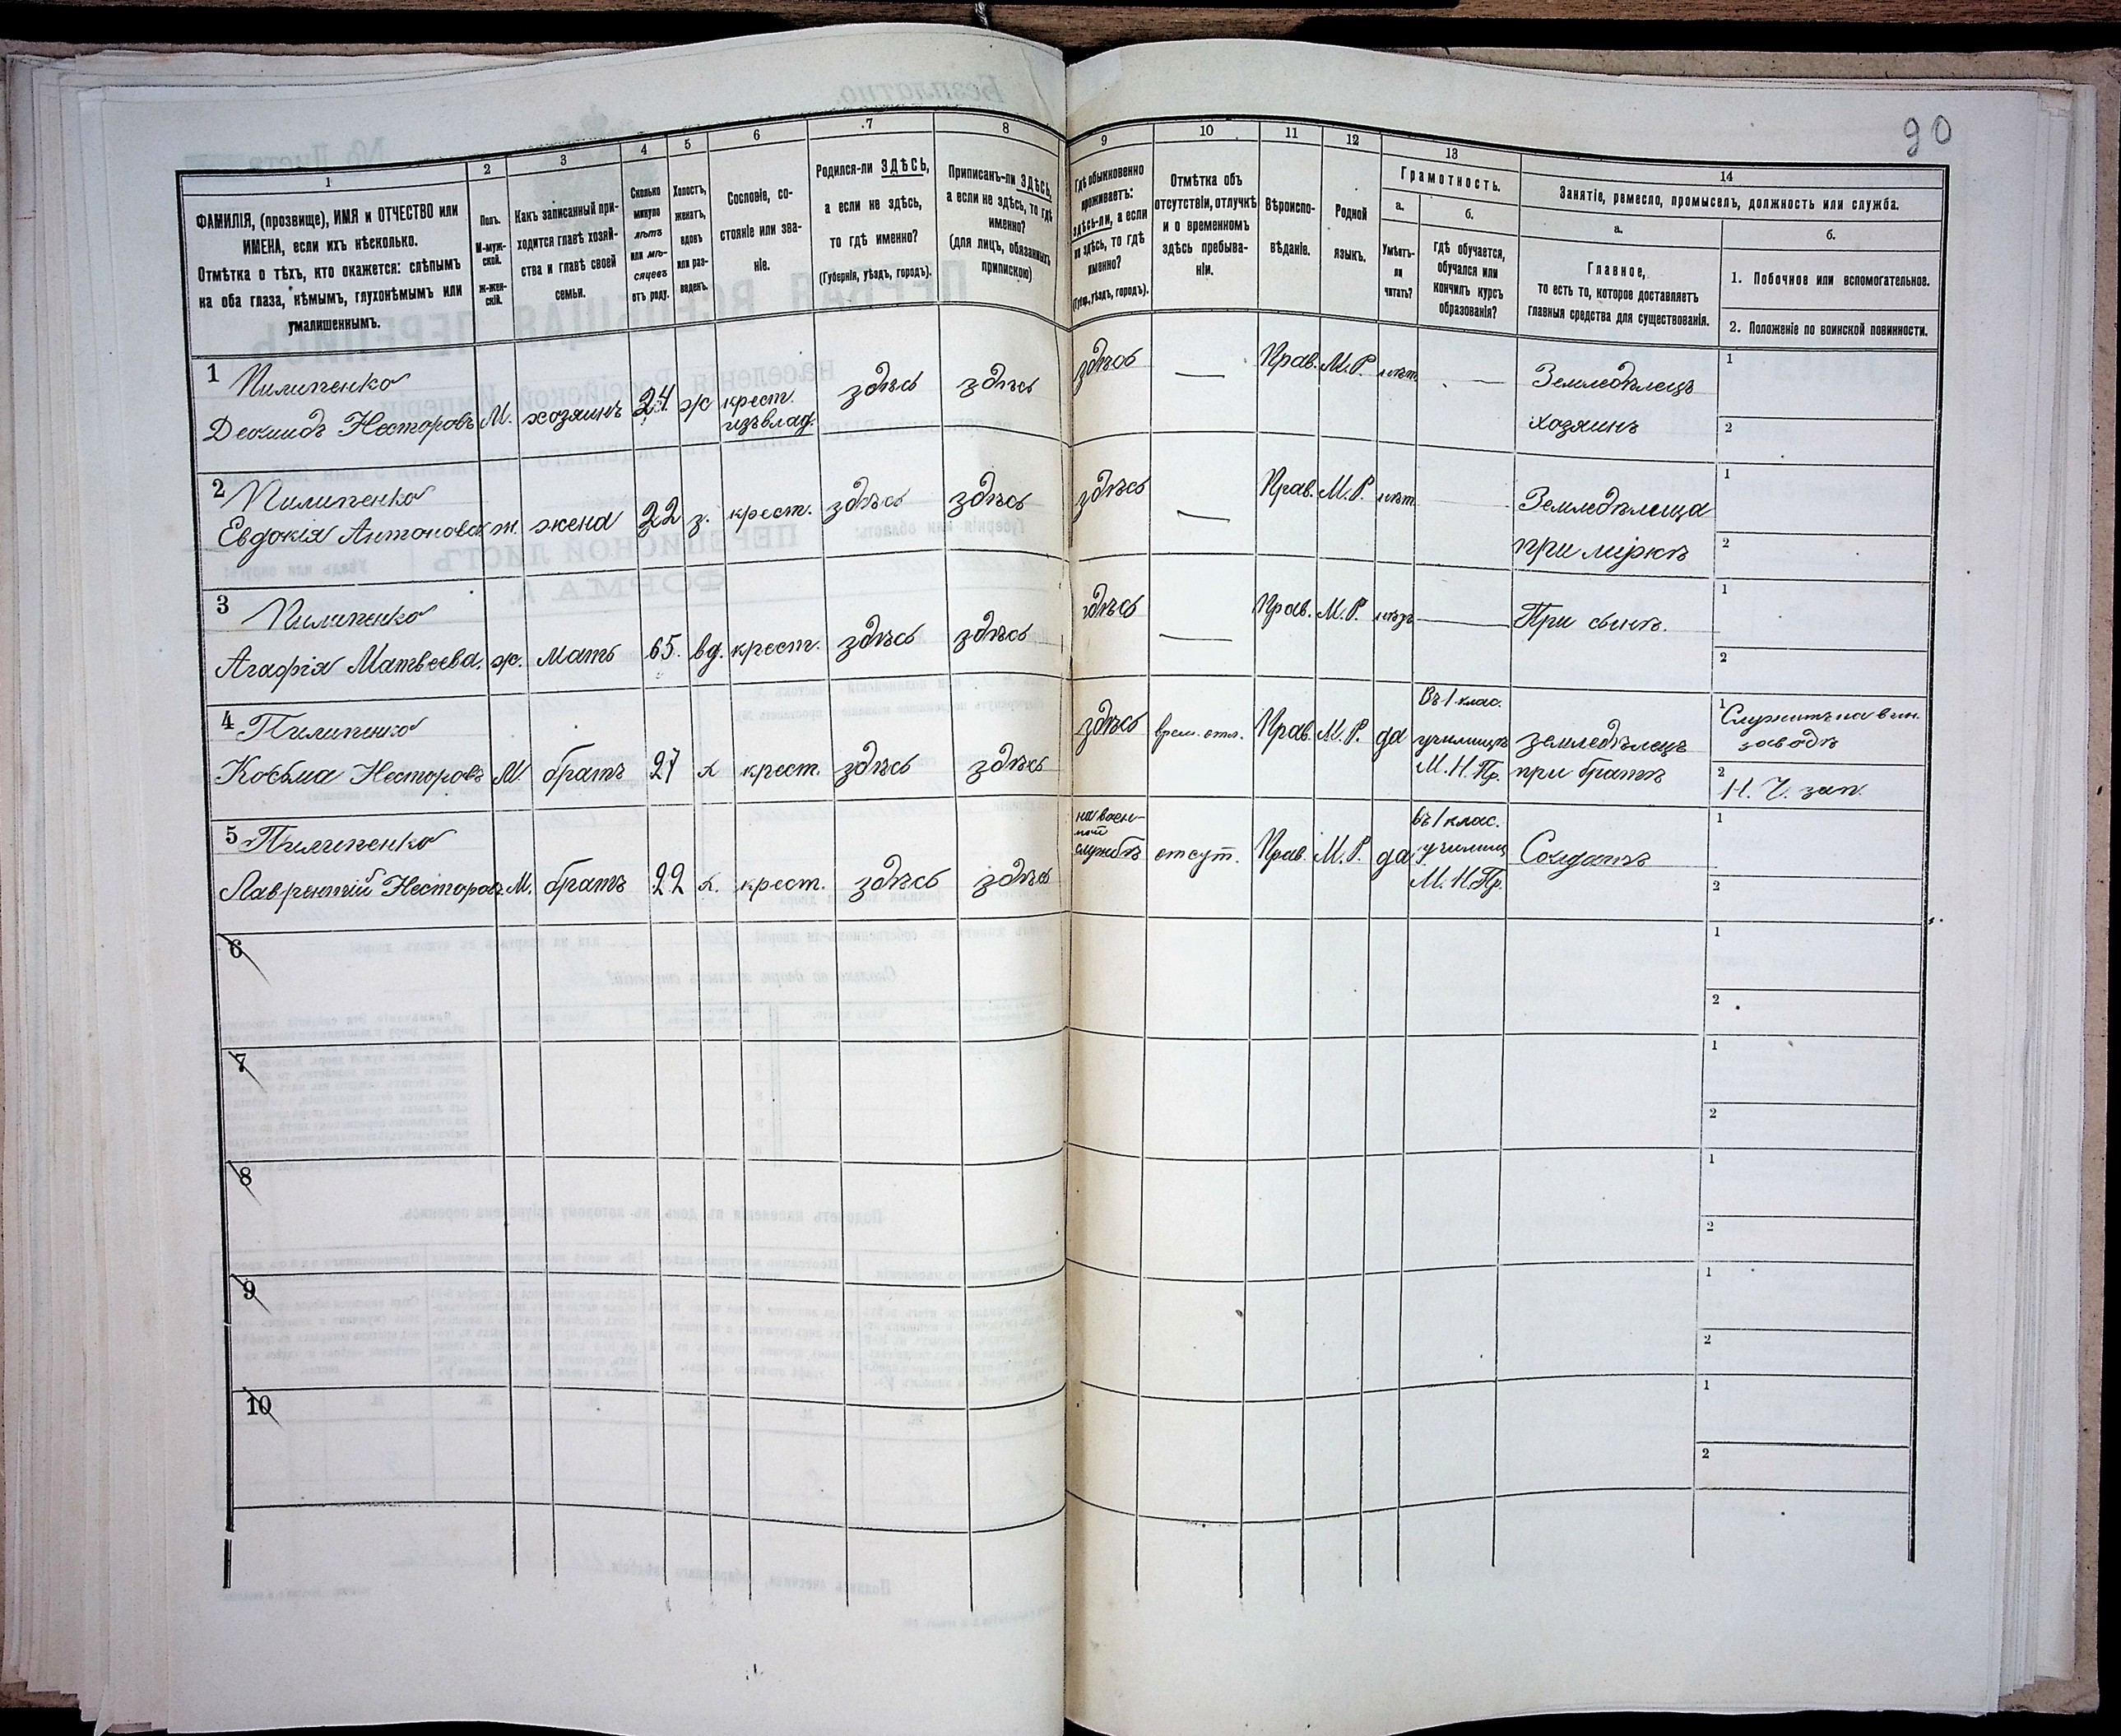 90
1
ФАМИЛІЯ, (прозвище), ИМЯ и ОТЧЕСТВО или
ИМЕНА, если ихъ нѣсколько.
Отмѣтка о тѣхъ, кто окажется: слѣпымъ
на оба глаза, нѣмымъ, глухонѣмымъ или
умалишеннымъ.
2
Полъ.
М-муж-
ской.
Ж-жен-
скій.
3
Какъ записанный при-
ходится главѣ хозяй-
ства и главѣ своей
семьи.
4
Сколько
минуло
лѣтъ
или мѣ-
сяцевъ
отъ роду.
5
Холостъ,
женатъ,
вдовъ
или раз-
веденъ.
6
Сословіе, со-
стояніе или зва-
ніе.
7
Родился-ли ЗДѢСЬ,
а если не здѣсь,
то гдѣ именно?
(Губернія, уѣздъ, городъ).
8
Приписанъ-ли ЗДѢСЬ,
а если не здѣсь, то гдѣ
именно?
(для лицъ, обязанныхъ
припискою)
9
Гдѣ обыкновенно
проживаетъ:
здѣсь-ли, а если
не здѣсь, то гдѣ
именно?
(Губ., уѣздъ, городъ).
10
Отмѣтка объ
отсутствіи, отлучкѣ
и о временномъ
здѣсь пребыва-
ніи.
11
Вѣроиспо-
вѣданіе.
12
Родной
языкъ.
13
Грамотность.
а.
Умѣетъ-
ли
читать?
б.
Гдѣ обучается,
обучался или
кончилъ курсъ
образованія?
14
Занятіе, ремесло, промыселъ, должность или служба.
а.
Главное,
то есть то, которое доставляетъ
главныя средства для существованія.
б.
1. Побочное или вспомогательное.
2. Положеніе по воинской повинности.
1 Пилипенко
Деомидъ Несторовъ М. хозяинъ 24 ж крест. здѣсь здѣсь здѣсь — Прав. М.Р. нѣт — Земледѣлецъ 1
изъ влад. хозяинъ 2
2 Пилипенко
Евдокія Антонова ж. жена 22 з. крест. здѣсь здѣсь здѣсь — Прав. М.Р. нѣт Земледѣлица 1
при мужѣ 2
3 Пилипенко
Агафія Матвеева. ж. мать 65. вд. крест. здѣсь здѣсь здѣсь — Прав. М.Р. нѣтъ — При сынѣ. 1
2
4 Пилипенко
Косьма Несторовъ М. братъ 27 х крест. здѣсь здѣсь здѣсь врем. отл. Прав. М.Р. да
Въ 1 клас.
училищѣ
М. Н. Пр.
земледѣлецъ
при братѣ
1 Служитъ на вин.
заводѣ
2 Н. Ч. зап.
5 Пилипенко
Лаврентій Несторовъ М. братъ 22 х. крест. здѣсь здѣсь
на воен-
ной
службѣ
отсут. Прав. М.Р. да
въ 1 клас.
училищ
М. Н. Пр.
Солдатъ
1
2
6 1
2
7 1
2
8 1
2
9 1
2
10 1
2